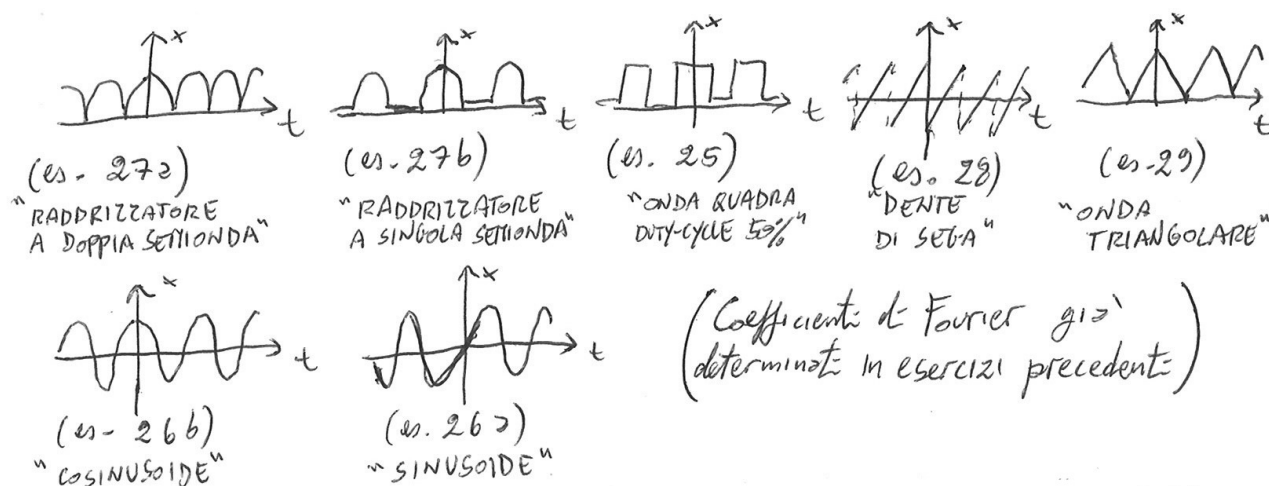 x
t
(es. 27a)
"RADDRIZZATORE
A DOPPIA SEMIONDA"
x
t
(es. 27b)
"RADDRIZZATORE
A SINGOLA SEMIONDA"
x
t
(es. 25)
"ONDA QUADRA
DUTY-CYCLE 50%"
x
t
(es. 28)
"DENTE
DI SEGA"
x
t
(es. 29)
"ONDA
TRIANGOLARE"
x
t
(es. 26b)
"COSINUSOIDE"
x
t
(es. 26a)
"SINUSOIDE"
(Coefficienti di Fourier già
determinati in esercizi precedenti)